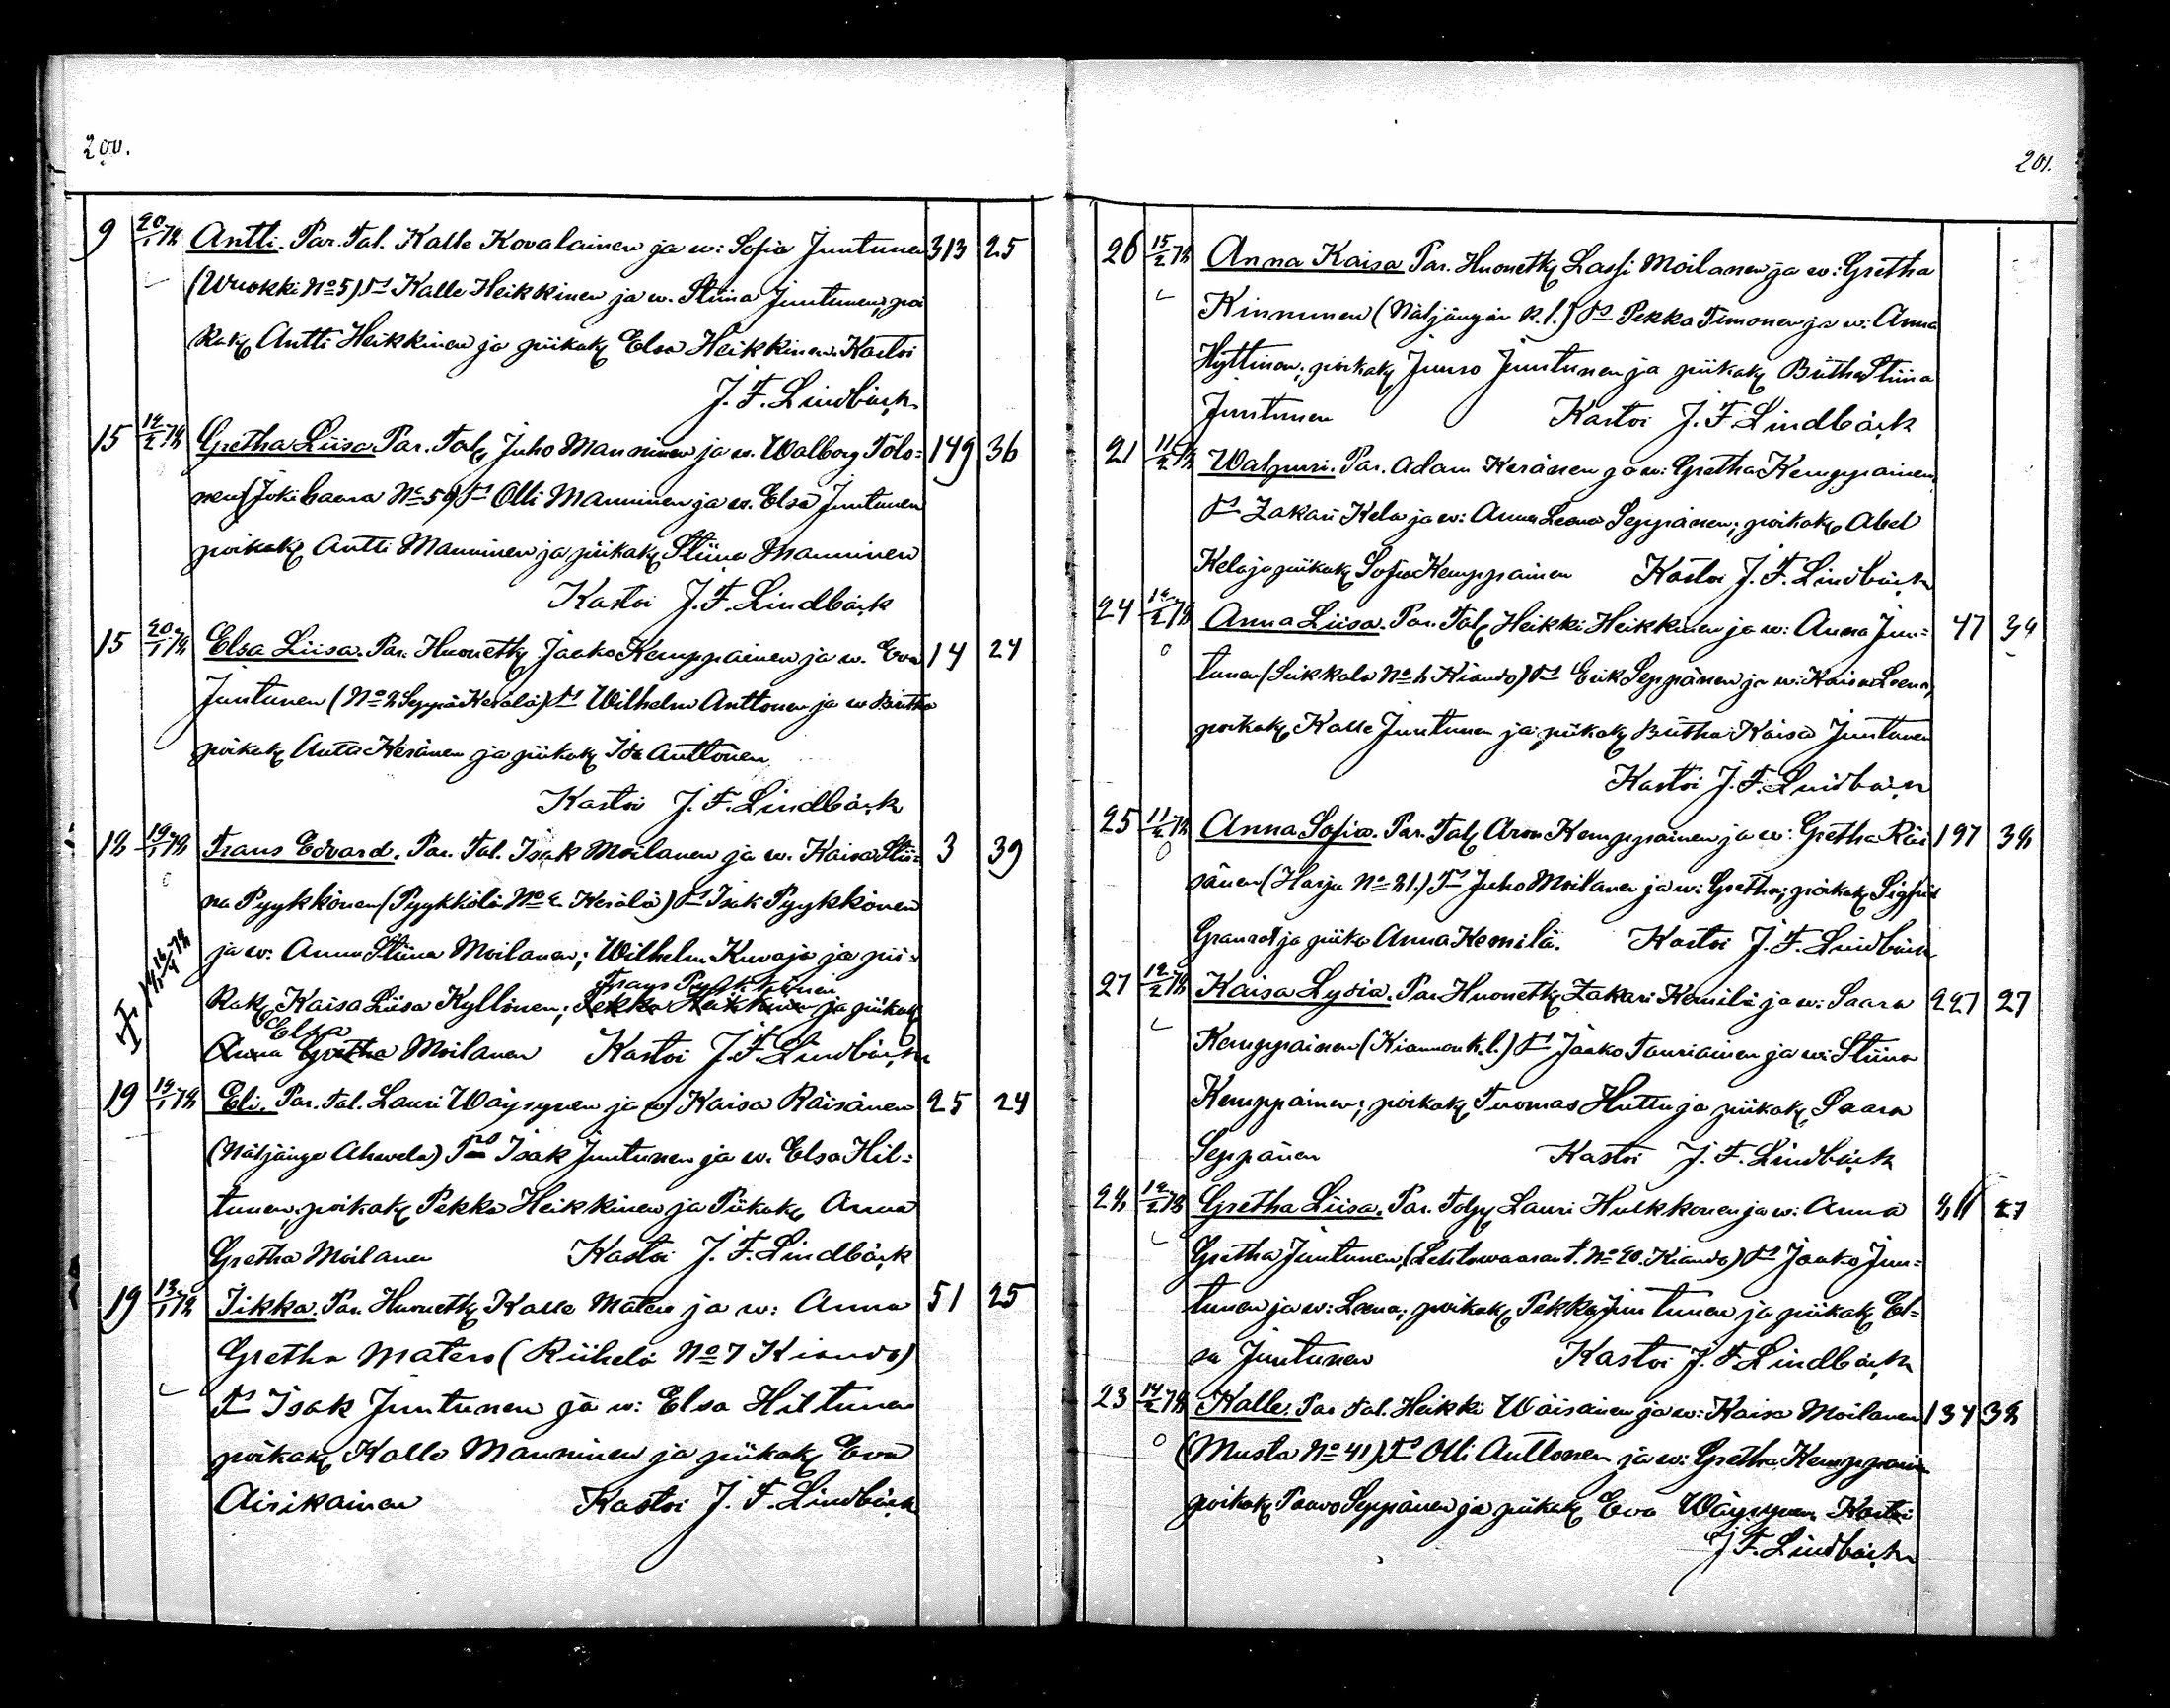 200.
9 20/1 78 Antti. Par. Tal. Kalle Kovalainen ja w: Sofia Juntunen 313 25
(Wuokki No 5) Ts Kalle Heikkinen ja w. Stiina Juntunen, poi
kak Antti Heikkinen ja piikak Elsa Heikkinen. Kastoi
J. F. Lindbäck
15 12/2 78 Gretha Liisa Par. Tal Juho Manninen ja w. Walborg Tolo= 149 36
nen (Jokihaara No 59) Ts Olli Manninen ja w. Elsa Juntunen
poikak Antti Manninen ja piikak Stiina Manninen
Kastoi J. F. Lindbäck
15 20/1 78 Elsa Liisa. Par. Huonetk Jaako Kemppainen ja w. Eva 14 24
Juntunen (No 2 Seppä Kerälä) Ts Wilhelm Anttonen ja w Britha
poikak Antti Keränen ja piikak Ida Anttonen
Kastoi J. F. Lindbäck
18 19/1 78 Frans Edvard. Par. Tal. Isak Moilanen ja w. Kaisa Stii= 3 39
na Pyykkönen (Pyykkölä No Kerälä) Ts Isak Pyykkönen
ja w. Anna Stiina Moilanen; Wilhelm Kuvaja ja pii=
Frans Pyykkönen
kak Kaisa Liisa Kyllönen; Pekka Heikkinen ja piikak
Elsa
Anna Gretha Moilanen Kastoi J. F. Lindbäck
19 19/1 78 Eli. Par. Tal. Lauri Wäysynen ja w Kaisa Räisänen 25 24
(Näljänge Ahavela) Ts Isak Juntunen ja w. Elsa Hil=
tunen, poikak Pekka Heikkinen ja Piikak Anna
Gretha Moilanen Kastoi J. F. Lindbäck
19 13/1 78 Iikka. Par. Huonetk Kalle Matero ja w: Anna 51 25
Gretha Matero (Riihelä No 7 Kiando)
Ts Isak Juntunen ja w: Elsa Hiltunen
poikak Kalle Manninen ja piikak Eva
Airikainen Kastoi J. F. Lindbäck
201.
26 15/2 78 Anna Kaisa Par. Huonetk Lassi Moilanen ja w: Gretha
Kinnunen (Näljängän k. l.) Ts Pekka Timonen ja w: Anna
Hyttinen; poikak Juuso Juntunen ja piikak Britha Stiina
Juntunen Kastoi J. F. Lindbäck
21 11/2 78 Walpuri. Par. Adam Keränen ja w: Gretha Kemppainen,
Ts Zakari Kela ja w: Anna Leena Seppänen; poikak Abel
Kela ja piikak Sofia Kemppainen Kastoi J. F. Lindbäck
24 12/2 78 Anna Liisa. Par. Tal Heikki Heikkinen ja w: Anna Jun= 47 34
tunen (Seikkala No Kiando) Ts Erik Seppänen ja w: Kaisa Leena,
poikak Kalle Juntunen ja piikak Britha Kaisa Juntunen
Kastoi J. F. Lindbäck
25 11/2 78 Anna Sofia. Par. Tal Aron Kemppainen ja w: Gretha Räi 197 38
sänen (Harju No 21.) Ts Juho Moilanen ja w: Gretha; poikak Sigfrid
Granrot ja piika Anna Kemilä. Kastoi J. F. Lindbäck
27 12/2 78 Kaisa Lydia. Par Huonetk Zakari Kemilä ja w: Saara 227 27
Kemppainen (Kiannan k. l.) Ts Jaako Tauriainen ja w: Stiina
Kemppainen; poikak Tuomas Huttu ja piikak Saara
Seppänen Kastoi J. F. Lindbäck
28 12/2 78 Gretha Liisa. Par. Lauri Hulkkonen ja w: Anna 27
Gretha Juntunen, (Lehtowaaran t. No 20. Kiando) Ts Jaako Jun=
tunen ja w: Leena; poikak Pekka Juntunen ja piikak El=
sa Juntunen Kastoi J. F. Lindbäck
23 14/2 78 Kalle. Par Tal. Heikki Wäisänen ja w: Kaisa Moilanen 134 38
(Musta No 41) Ts Olli Anttonen ja w: Gretha Kemppainen
poikak Paavo Seppänen ja piikak Eva Wäysynen. Kastoi
J. F. Lindbäck